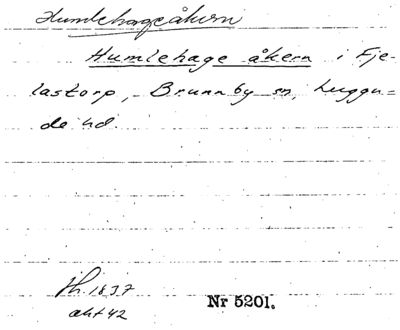 Humlehageåkern
Humlehage åkern i Fje-
lastorp, Brunnby sn, Luggu-
de hd.
Sh. 1837
akt 42
Nr 5201.